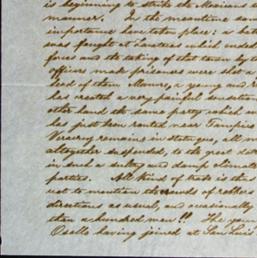 is beginning to strike the Mexicans a
manner. In the meantime some
importance have taken place: a bat
was fought at which ended
forces and the taking of that town by t
officers made prisoners were shot a
head of them a young and
has created a very painful sensation
other hand the same party which
has just been routed near Tampico
Veracruz remains in statu quo, all
altogether suspended, to the great
in such a sultry and damp climate
parties. All Kind of trade is the
not to mention the crowds of robbers
directions as usual, and occasionally
than a hundred men!! The young
Osollo having joined at San Luis